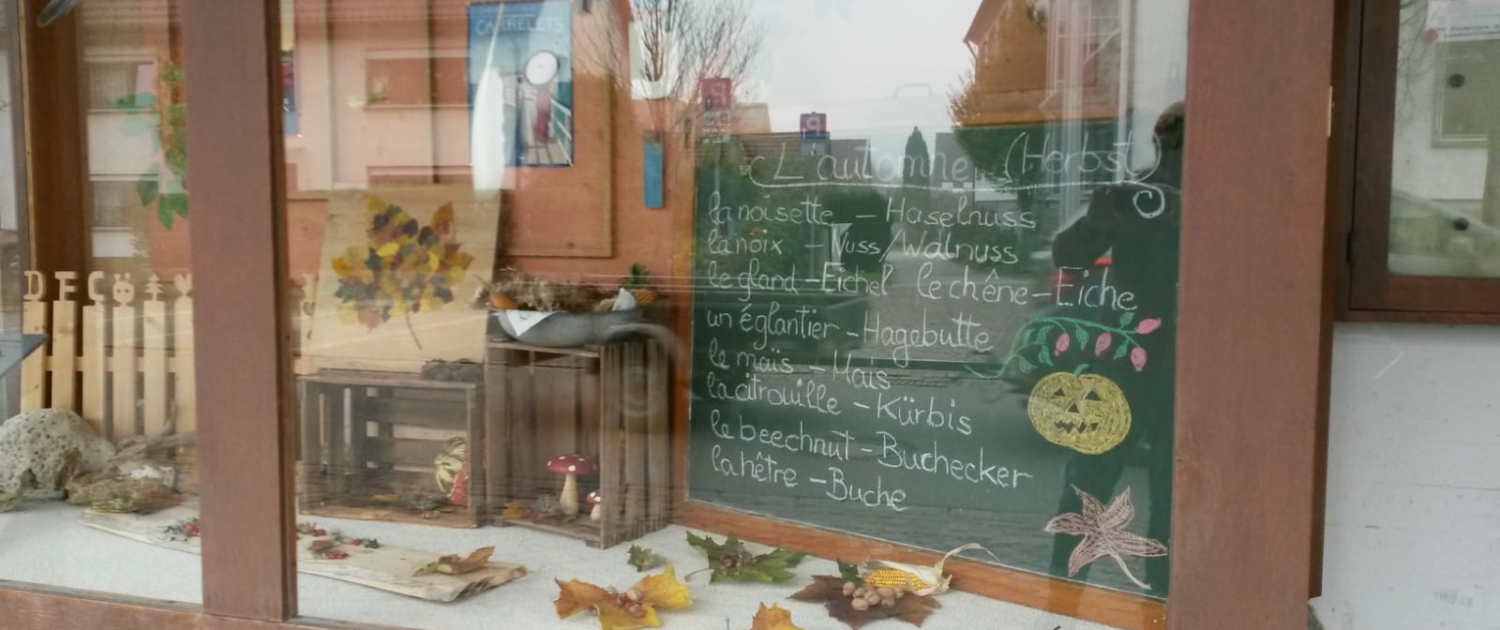 CARRELETS
DECO
L'automne (Herbst)
la noisette – Haselnuss
la noix – Nuss/Walnuss
le gland – Eichel le chêne – Eiche
un églantier – Hagebutte
le maïs – Mais
la citrouille – Kürbis
le beechnut – Buchecker
la hêtre – Buche